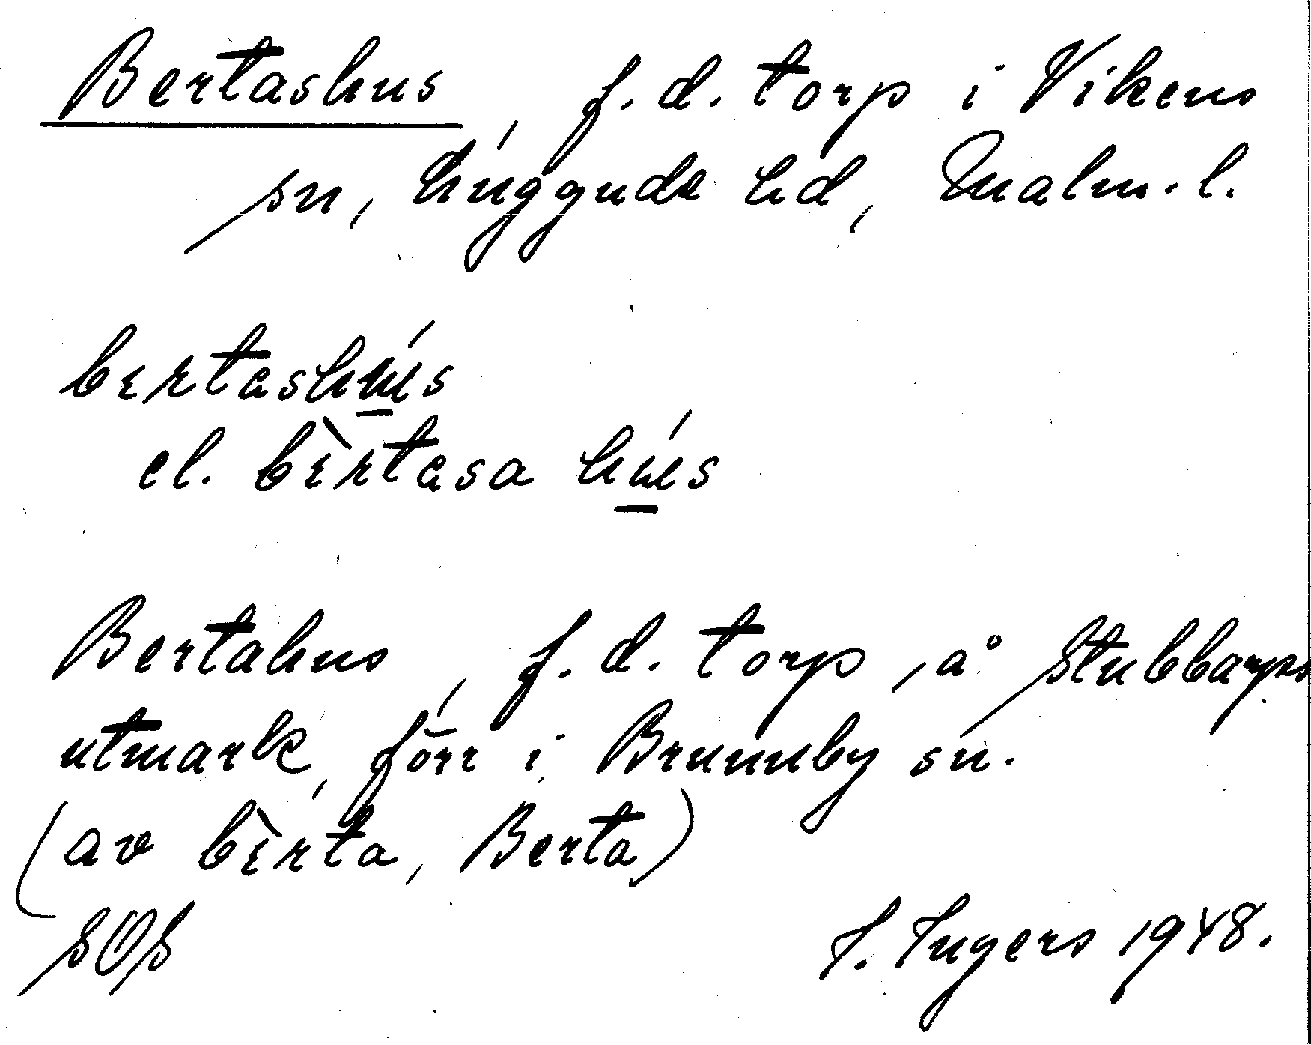 Bertashus, f. d. torp i Vikens
sn, Luggude hd, Malm. l.
bertashús
el. bèrtasa hús
Bertahus, f. d. torp, å Stubbarps
utmark, förr i Brunnby sn.
(av bèrta, Berta)
SOS I. Ingers 1948.